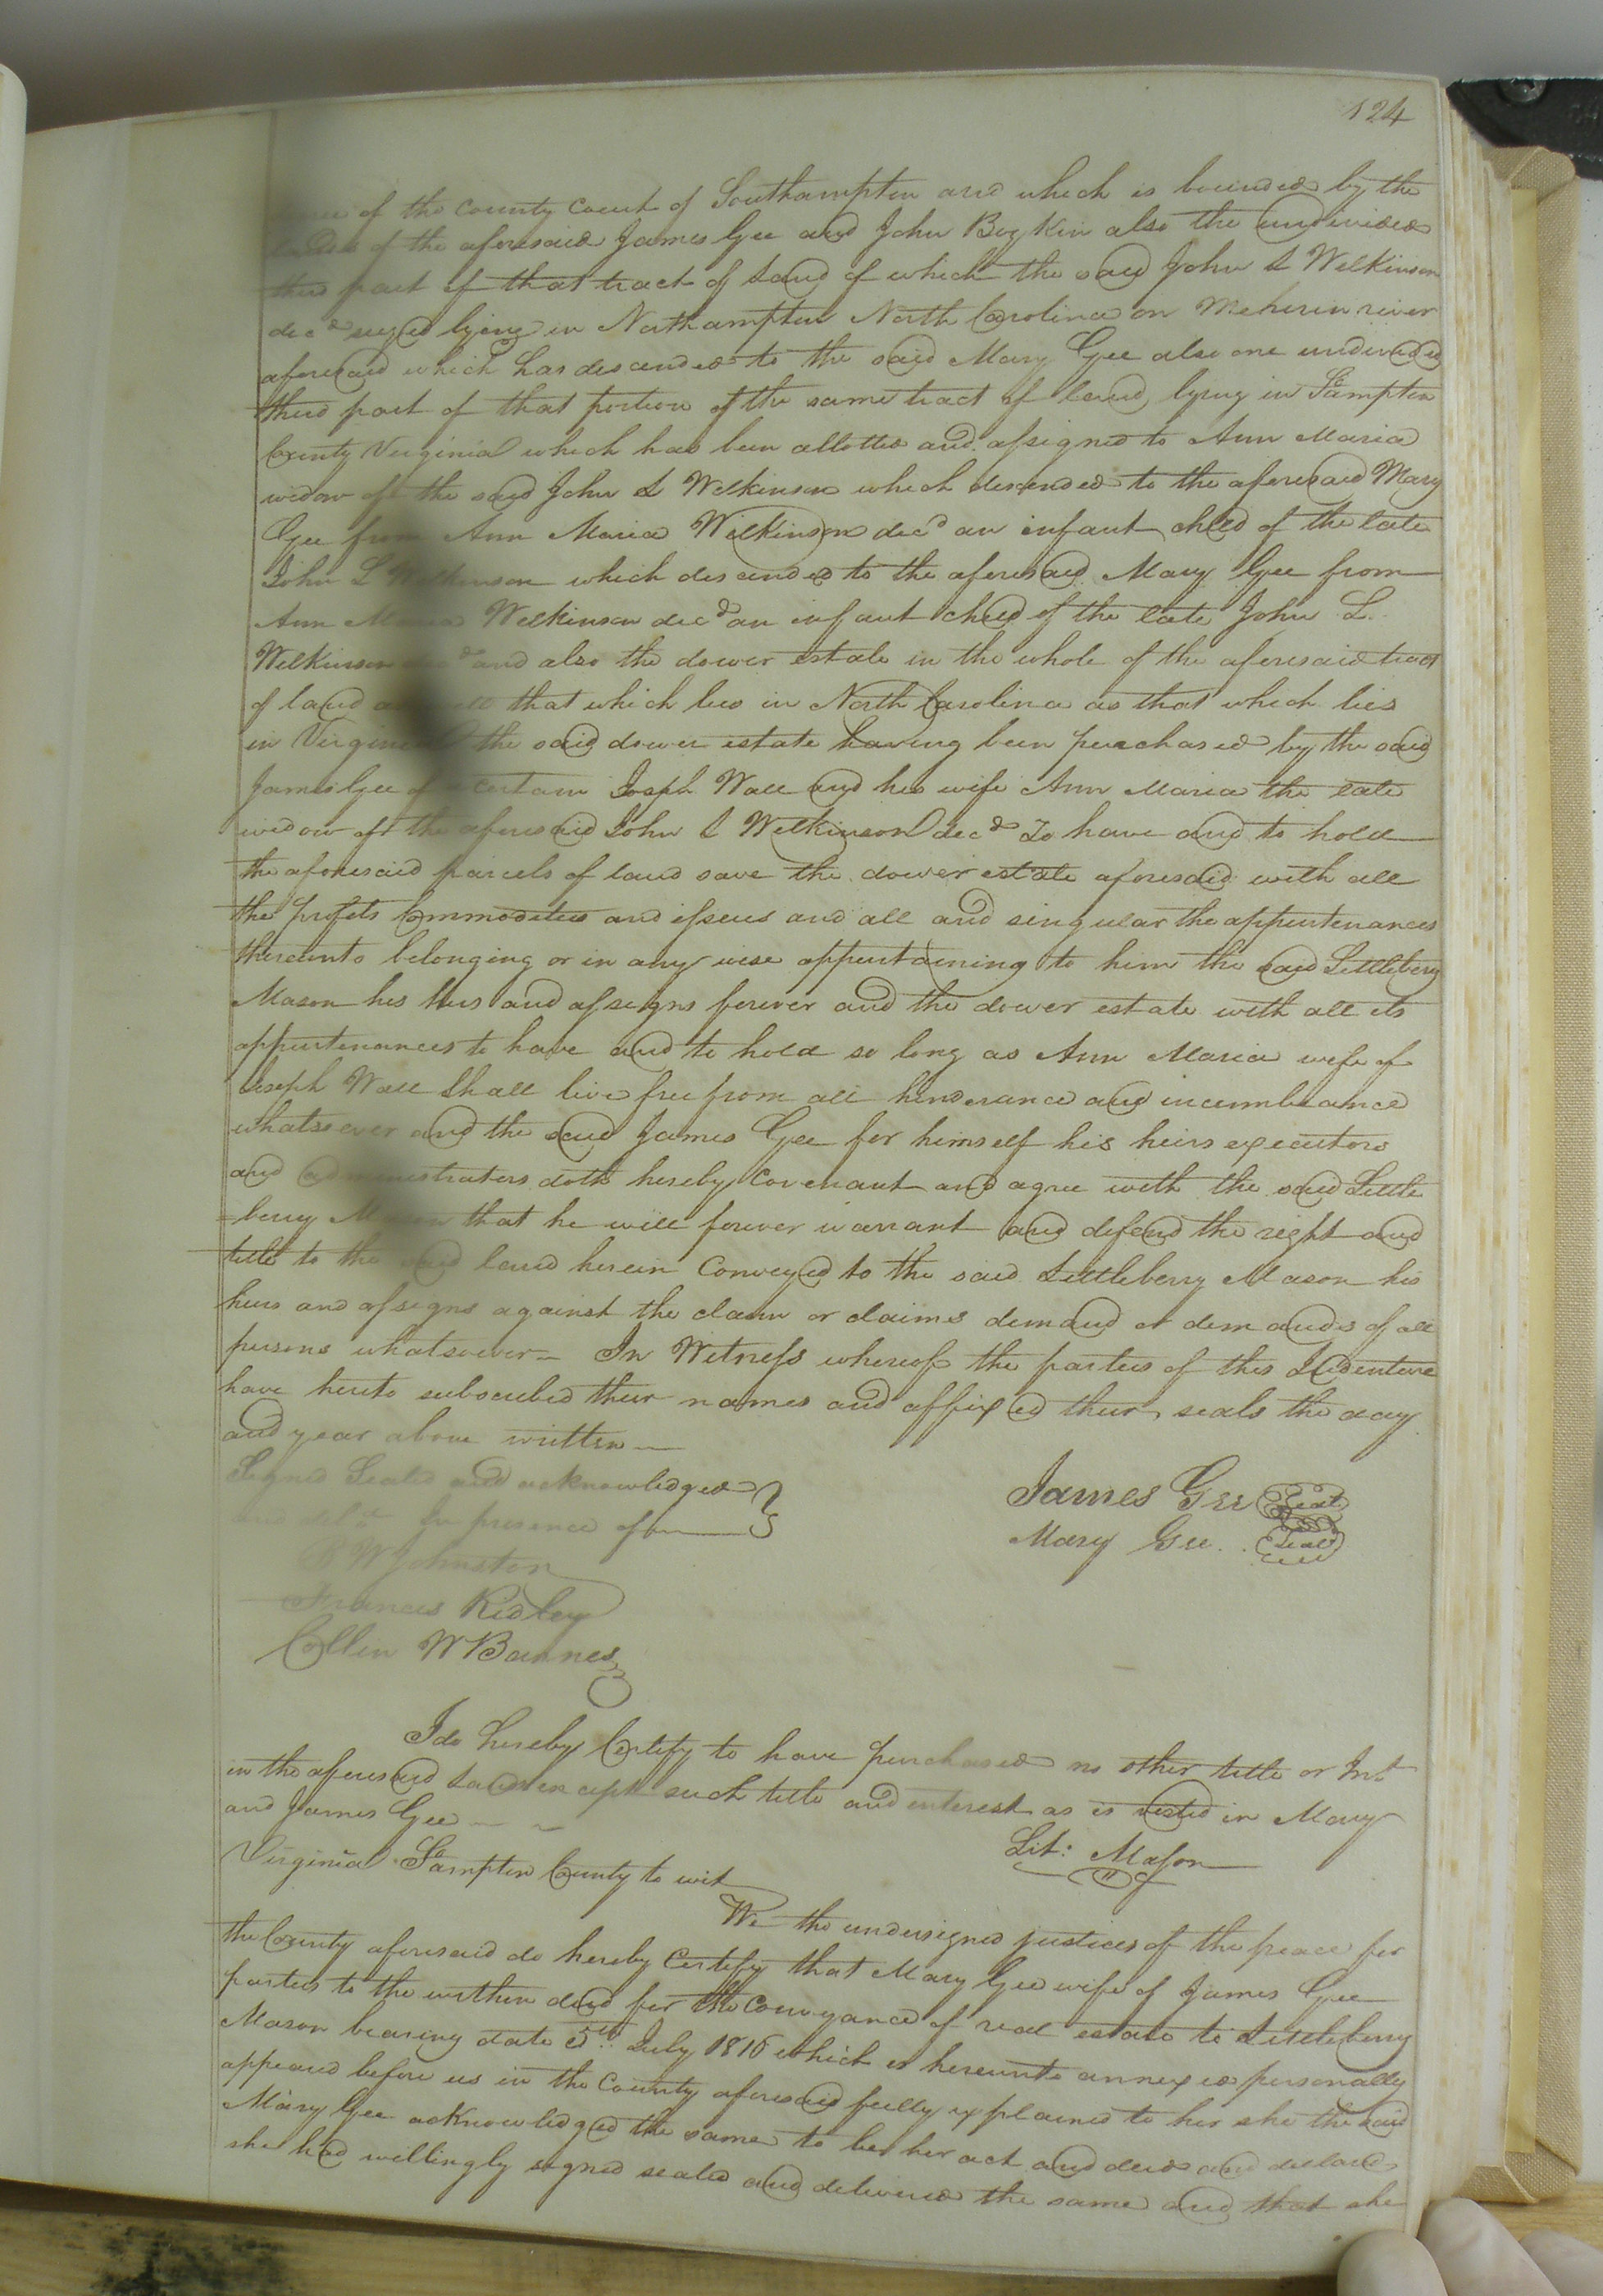 124
of the County Court of Southampton and which is bounded by the
of the aforesaid James Gee and John Boykin also the undivided
third part of that tract of Land of which the said John L Wilkinson
decd siezed lying in Northampton North Carolina on Meherin river
aforesaid which has descended to the said Mary Gee also one undivided
third part of that portion of the same tract of land lying in So.ampton
County Virginia which has been allotted and assigned to Ann Maria
widow of the said John L Wilkinson which descended to the aforesaid Mary
Gee from Ann Maria Wilkinson decd an infant child of the late
John L Wilkinson which descended to the aforesaid Mary Gee from
Ann Maria Wilkinson decd an infant child of the late John L.
Wilkinson decd and also the dower estate in the whole of the aforesaid tract
of land as well that which lies in North Carolina as that which lies
in Virginia the said dower estate having been purchased by the said
James Gee of a certain Joseph Wall and his wife Ann Maria the late
widow of the aforesaid John L Wilkinson decd To have and to hold
the aforesaid parcels of land save the dower estate aforesaid with all
the profits Commodities and issues and all and singular the appurtenances
thereunto belonging or in any wise appurtaining to him the said Littlebery
Mason his heirs and assigns forever and the dower estate with all its
appurtenances to have and to hold so long as Ann Maria wife of
Joseph Wall Shall live free from all hinderance and incumbrance
whatsoever and the said James Gee for himself his heirs executors
and administrators doth hereby Covenant and agree with the said Little
-berry Mason that he will forever warrant and defend the right and
title to the said land herein Conveyed to the said Littleberry Mason his
heirs and assigns against the claim or claims demand or demands of all
persons whatsoever- In Witness whereof the parties of this Indenture
have hereto subscribed their names and affixed their seals the day
and year above written
Signed Sealed and acknowledged
and deld. In presence of
James Gee Seal
Mary Gee. Seal
R W Johnston
Frances Ridley
Collin W Barnes
I do hereby Certify to have purchased no other title or Int
in the aforesaid Land except such title and interest as is vested in Mary
and James Gee
Lit: Mason
Virginia So.ampton County to wit
We the undersigned justices of the peace for
the County aforesaid do hereby Certify that Mary Gee wife of James Gee
parties to the within deed for the Conveyance of real estate to Littleberry
Mason bearing date 5th July 1816 which is hereunto annexed personally
appeared before us in the County aforesaid fully explained to her she the said
Mary Gee acknowledged the same to be her act and deed and declared
she had willingly signed sealed and delivered the same and that she